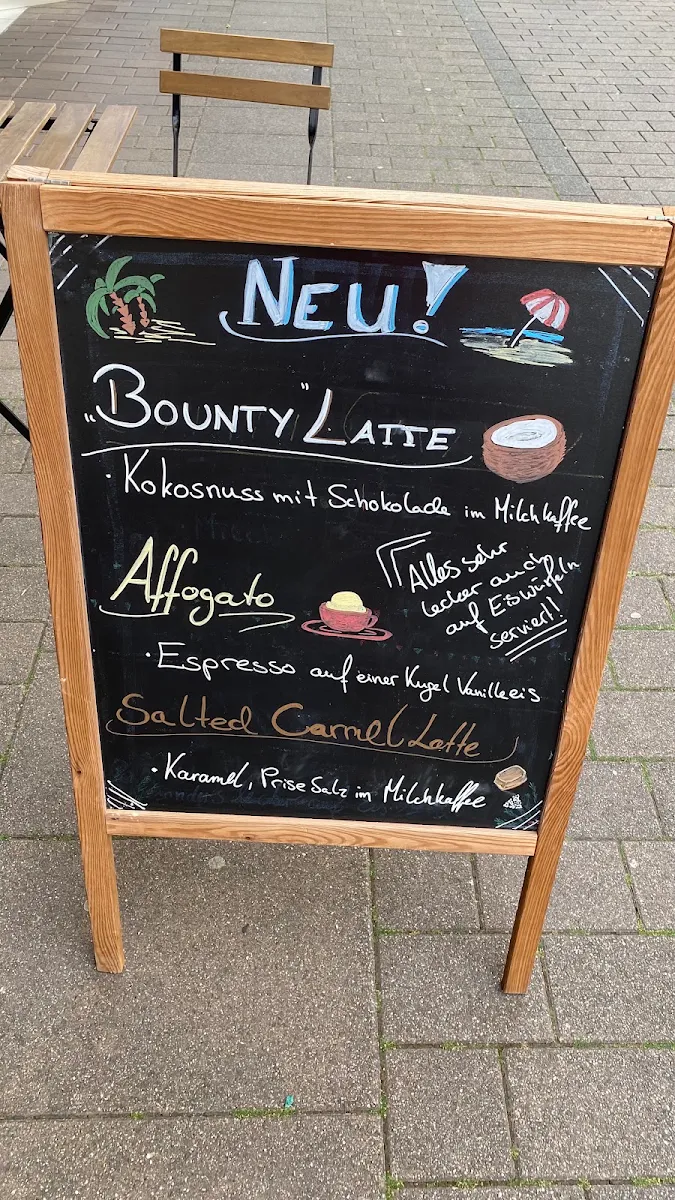 NEU!
„BOUNTY" LATTE
· Kokosnuss mit Schokolade im Milchkaffee
Affogato
Alles sehr
lecker auch
auf Eiswürfeln
serviert!
· Espresso auf einer Kugel Vanilleeis
Salted Carmel Latte
· Karamel, Prise Salz im Milchkaffee